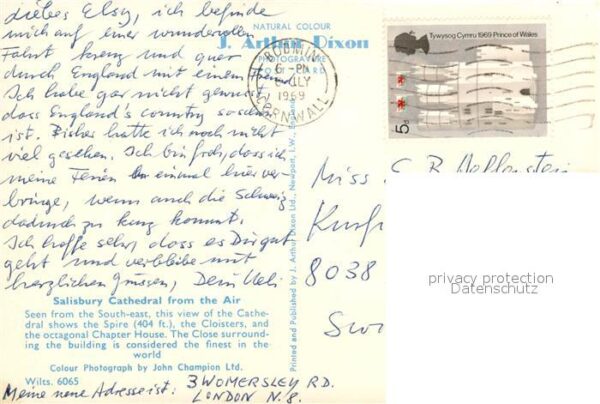 Liebes Elsy, ich befinde
mich auf einer wundervollen
Fahrt kreuz und quer
durch England mit einem
Ich habe gar nicht gewusst
dass England's country so schön
ist. Bisher hatte ich noch nicht
viel gesehen. Ich bin froh, dass ich
meine Ferien einmal hier ver-
bringe, wenn auch die Schweiz
dadurch zu kurz kommt.
Ich hoffe sehr, dass es Dir gut
geht und verbleibe mit
herzlichen Grüssen, Dein Ueli
NATURAL COLOUR
J. Arthur Dixon
PHOTOGRAVURE
POSTCARD
BODMIN
6 - PM
JLY
1969
CORNWALL
Tywysog Cymru 1969 Prince of Wales
5d
Miss
8038
privacy protection
Datenschutz
Printed and Published by J. Arthur Dixon Ltd., Newport, I.W., England.
Salisbury Cathedral from the Air
Seen from the South-east, this view of the Cathe-
dral shows the Spire (404 ft.), the Cloisters, and
the octagonal Chapter House. The Close surround-
ing the building is considered the finest in the
world
Colour Photograph by John Champion Ltd.
Wilts. 6065
Meine neue Adresse ist: 3 WOMERSLEY RD.
LONDON N.8.